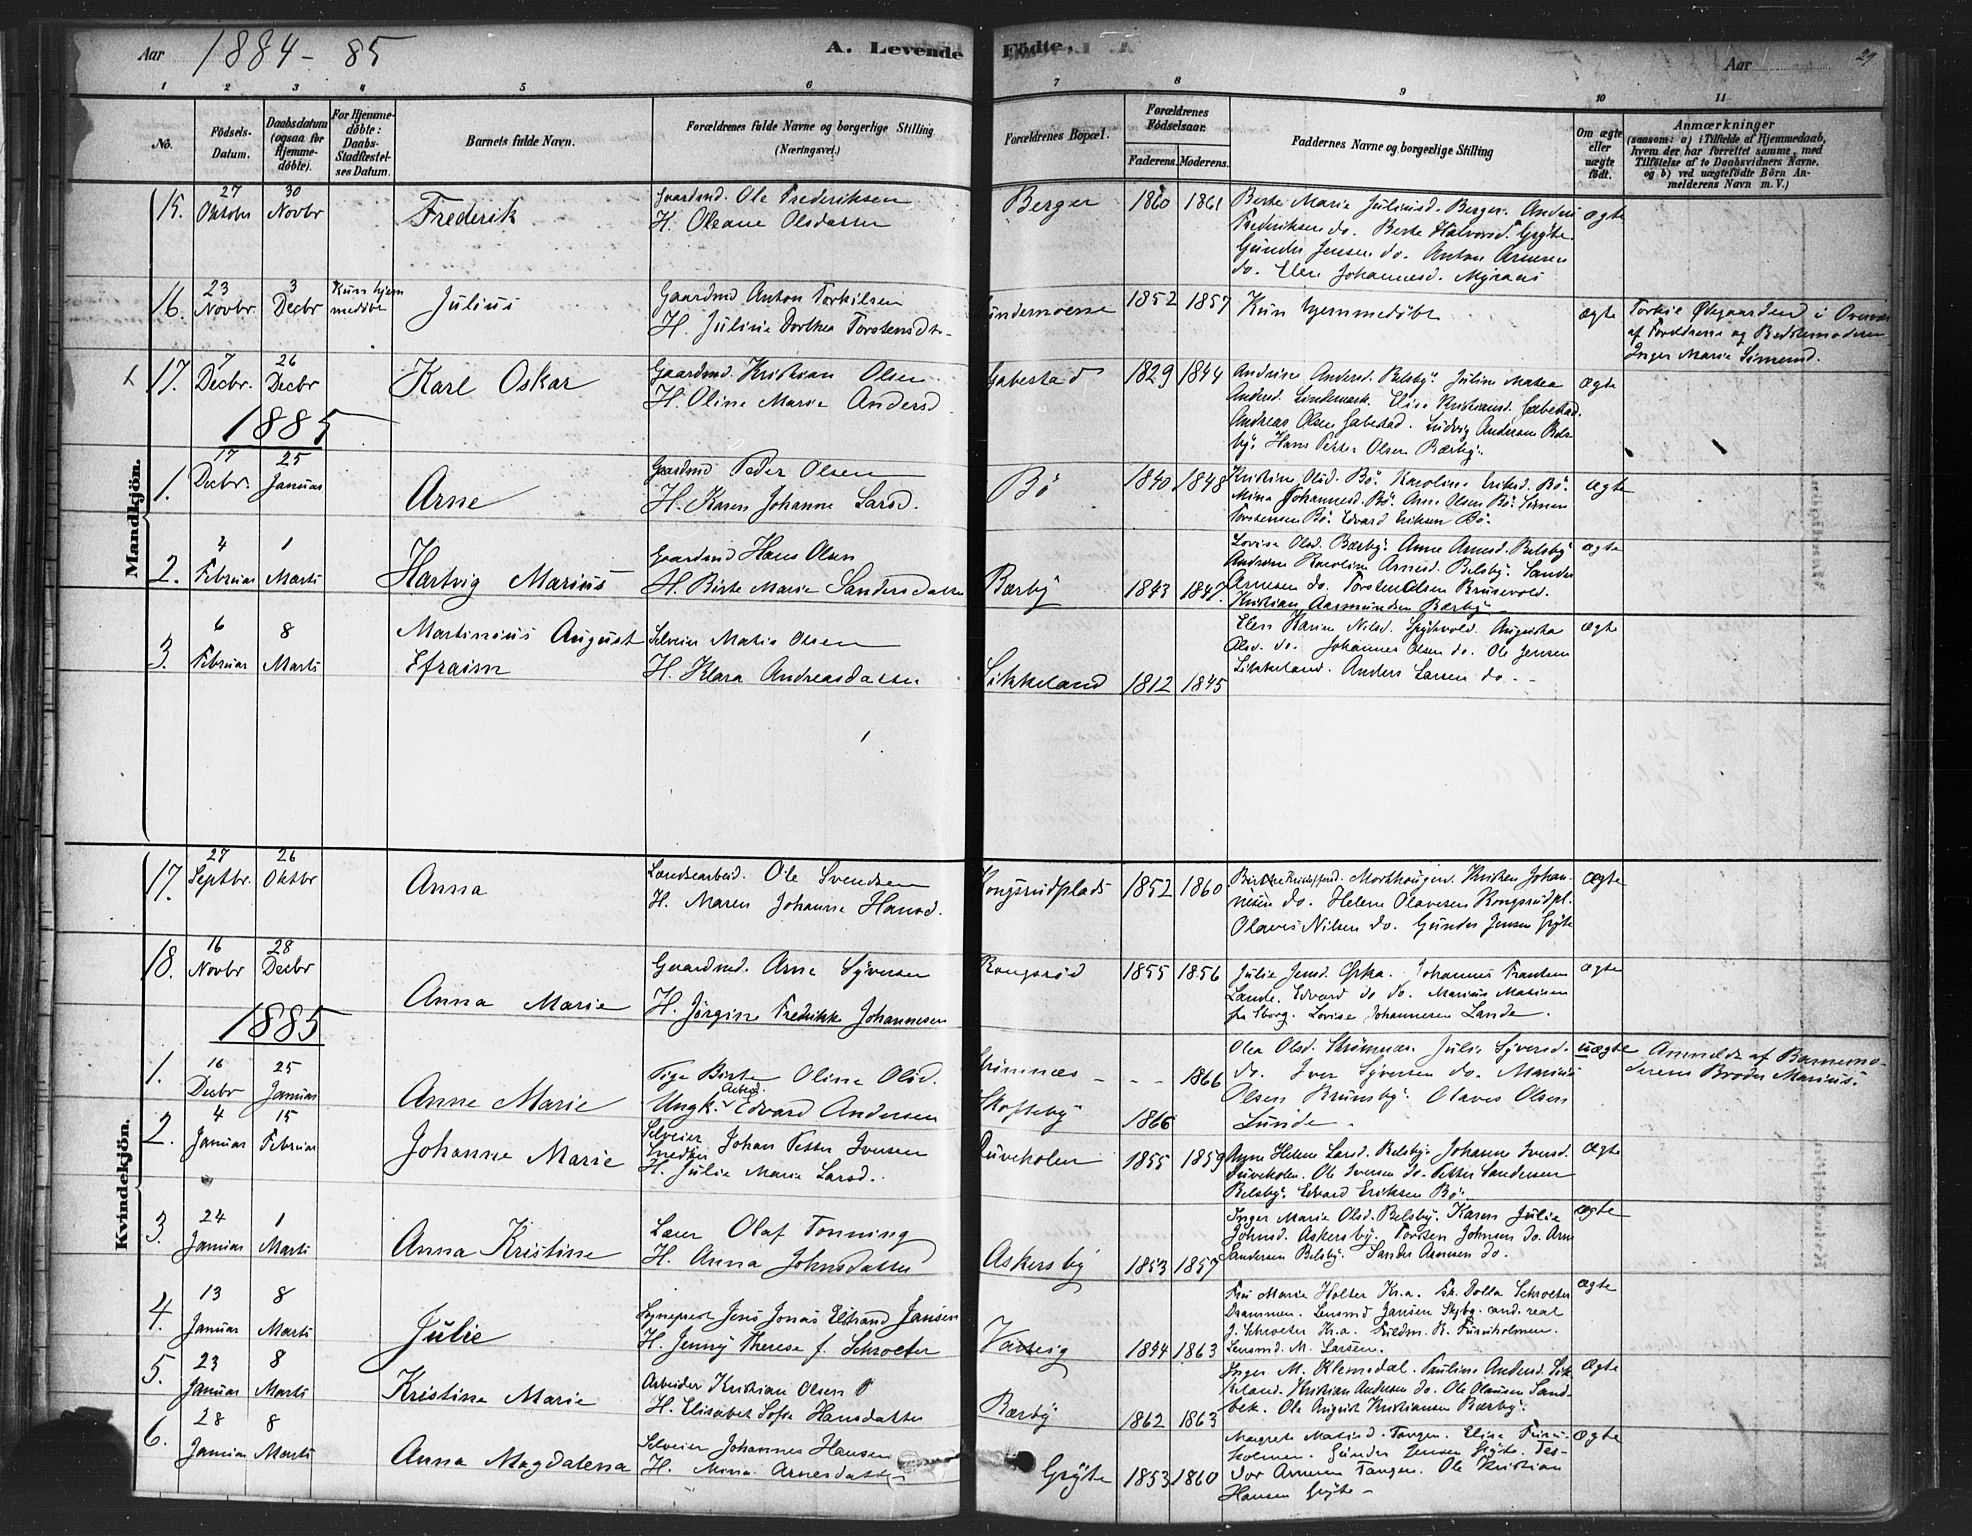 Aar 1884-85
A. Levende
Födte.
Aar
29
1 2 3 4 5 6 7 8 9 10 11
No.
Födsels-
Datum.
Daabsdatum
(ogsaa for
Hjemme-
döbte).
For Hjemme-
döbte:
Daabs-
Stadfæstel-
ses Datum.
Barnets fulde Navn.
Forældrenes fulde Navne og borgerlige Stilling
(Næringsvei.)
Forældrenes Bopæl.
Forældrenes
Födselsaar.
Faderens. Moderens.
Faddernes Navne og borgerlige Stilling
Om ægte
eller
uægte
födt.
Anmærkninger
(saasom: a) i Tilfælde af Hjemmedaab,
hvem der har forrettet samme, med
Tilföielse af to Daabsvidners Navne.
og b) ved uægtefödte Börn An-
melderens Navn m. V.)
Mandkjön.
15. 27 Oktobr 30 Novbr Frederik
Gaardmd. Ole Frederiksen
H. Oleane Olsdatter
Berger 1860 1861
Berte Marie Juliusd. Berger. Anders
Frederiksen do. Berte Halvorsd. Gryte.
Gunder Jensen do. Anton Arnesen
do. Elen Johannesd. Myraas
ægte
16. 23 Novbr. 3 Decbr Kun hjem
meddöbt
Julius
Gaardmd Anton Torkilsen
H. Juline Dorthea Torstensdtr
1852 1857
Kun hjemmedöbt
ægte
Torkil Ödegaarden i Overvær
af Forældrene og Bedstemoderen
Inger Marie Simend.
17. 7 Decbr. 26 Decbr Karl Oskar
Gaardmd. Kristian Olsen
H. Oline Marie Andersd.
Gabestad 1829 1844
Andrine Andersd. Belsby. Juline Matea
Andersd. Lindemark. Elise Kristiansd. Gabestad.
Andreas Olsen Gabestad. Ludvig Andersen Bels-
by. Hans Petter Olsen Bærby.
ægte
1885
1. 17 Decbr. 25 Januar Arne
Gaardmd Peder Olsen
H. Karen Johanne Larsd.
Bö 1840 1848
Kristine Olsd. Bö. Karoline Eriksd. Bö.
Mina Johannesd. Bö. Arne Olsen Bö. Simen
Torstensen Bö. Edvard Eriksen Bö.
ægte
2. 4 Februar 1 Marts Hartvig Marius
Gaardmd Hans Olsen
H. Birte Marie Sandersdatter
Bærby 1843 1847.
Lovise Olsd. Bærby. Anne Arnesd. Belsby
Andrine Karoline Arnesd. Belsby. Sander
Arnesen do. Torsten Olsen Brunsvold.
Kristian Aasmundsen Bærby
ægte
3. 6 Februar 8 Marts Martinius August
Efraim
Selveier Matis Olsen
H. Klara Andreasdatter
Likkeland 1812 1845
Elen Karine Nilsd. Grydvold. Augusta
Olsd. do. Johannes Olsen do. Ole Jensen
Likkeland. Anders Larsen do.
ægte
Kvindekjön.
17. 27 Septbr. 26 Oktbr Anna
Landsarbeid. Ole Svendsen
H. Maren Johanne Hansd.
Kongsrudplads 1852 1860
Morkhaugen. Kristen Johan-
nesen do. Helene Olavesen Kongsrudpl.
Olaves Nilsen do. Gunder Jensen Gryte
ægte
18. 16 Novbr 28 Decbr Anna Marie
Gaardmd. Arne Syversen
H. Jörgine Fredrikke Johannesen
Kongsröd 1855 1856
Julie Jensd. Opha. Johannes Frantsen
Lande. Edvard do do. Marius Matisen
fra Sborg. Lovise Johannesen Lande.
ægte
1885
1. 16 Decbr 25 Januar Anne Marie
Pige Birte Oline Olsd.
Ungk. Arbeid. Edvard Andersen
Strömnæs - - - 1866
Skofteby 1866
Olea Olsd. Strömnæs. Julie Syversd.
do. Iver Syversen do. Marius
Olsen Brunsby. Olaves Olsen
Lunde.
uægte
Anmeldt af Barnemo-
derens Broder Marius.
2. 4 Januar 15 Februar Johanne Marie
Selveier
Snedker Johan Petter Iversen
H. Julie Marie Larsd.
Dueholen 1855 1859
Anne Helene Larsd. Belsby. Johanne Iversd.
Dueholen. Ole Iversen do. Petter Sandersen
Belsby. Edvard Eriksen Bö.
Ægte
3. 24 Januar 1 Marts Anna Kristine
Lærer Olaf Tonning
H. Anna Johnsdatter
Askersby 1853 1857
Inger Marie Olsd. Belsby. Karen Julie
Johnsd. Askersby. Torsten Johnsen do. Arne
Sandersen Belsby. Sander Arnesen do.
ægte
4. 13 Januar 8 Marts Julie
Sognepræst Jens Jonas Elstrand Jansen
H. Jenny Therese f. Schroeter
Varteig 1844 1863
Fru Marie Holter Kr.a. Frk. Dolla Schroeter
Drammen. Lensmd Jansen Skjbg. cand. real
J. Schroeter Kr.a. Fuldm. R. Furuholmen.
Lensmd. M. Larsen.
Ægte
5. 23 Januar 8 Marts Kristine Marie
Arbeider Kristian Olsen
H. Elisabet Sofie Hansdatter
Bærby 1862 1863
Inger M. Klemsdal. Pauline Andersd. Lik-
keland. Kristian Andersen do. Ole Olausen Sand-
bek. Ole August Kristiansen Bærby.
Ægte
6. 28 Januar 8 Marts Anna Magdalena
Selveier Johannes Hansen
H. Mina Arnesdatter
Gryte 1853 1860
Margrete Matisd. Tangen. Elise Furu-
holmen. Gunder Jensen Gryte. Teo-
dor Arnesen Tangen. Ole Kristian
Hansen Gryte
ægte